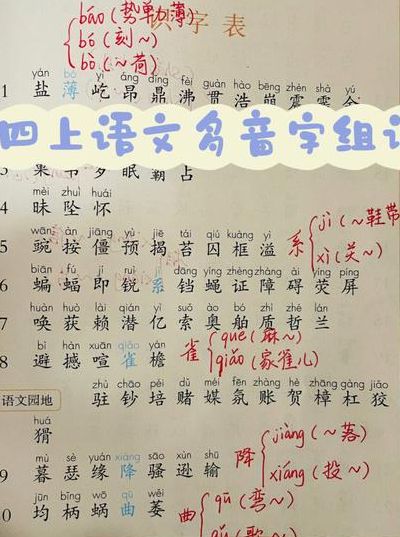 识字表
báo（势单力薄）
bó（刻～）
bò（～荷）
yán bó yì áng dǐng fèi guàn hào bēng zhèn shà yú
1 盐薄屹昂鼎沸贯浩崩震霎余
四上语文多音字组词
眠霸占
mèi zhuì huái
4 昧坠怀
wān àn jiāng yù jiē tái qiú kuàng yì
5 豌按僵预揭苔囚框溢
系
jì（～鞋带
xì（关～）
biān fú jí ruì jì dāng yíng zhèng zhàng ài yíng píng
6 蝙蝠即锐系铛蝇证障碍荧屏
huàn huò lài qián yì suǒ ào bó zhì zhé lán
7 唤获赖潜亿索奥舶质哲兰
bì hàn xuān qiāo yán
8 避撼喧雀檐
雀
què（麻～）
qiǎo（家雀儿）
语文园地
zhù chāo péi dǔ méi fēn zhàng hè zhāng gàng jiǎo
驻钞培赌媒氛账贺樟杠狡
huá
猾
mù sè yuán xiáng sāo xùn shū
9 暮瑟缘降骚逊输
降
jiàng（～落）
xiáng（投～）
jūn bǐng wō qū wěi
0 均柄蜗曲萎
曲
qū（弯～）
qǔ（歌～）